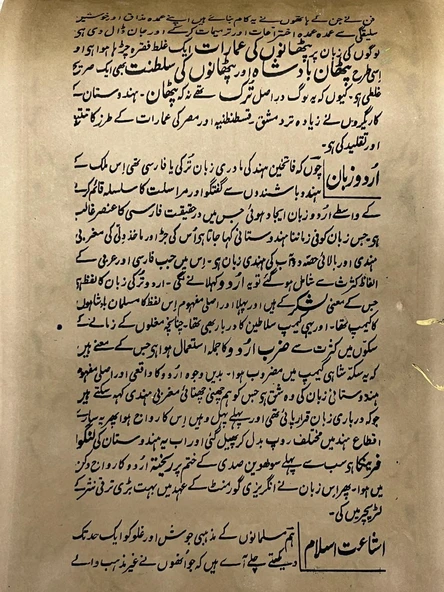 فن نے جن کے ہاتھوں نے یہ کام بنائے ہیں اپنے عمدہ مذاق اور خوش
سلیقگی سے عمدہ عمدہ اختراعات اور ترمیمات کر کے اور جان ڈال دی ہی
لوگوں کی زبان پر پٹھانوں کی عمارات ایک غلط فقرہ چڑہا ہوا ہی و
اسی طرح پٹھان بادشاہ اور پٹھانوں کی سلطنت بھی ایک صریح
غلطی ہی۔ کیوں کہ یہ لوگ دراصل ترک تھے نہ کہ پٹھان۔ ہندوستان کے
کاریگروں نے زیادہ تر دمشق قسطنطنیہ اور مصر کی عمارات کے طرز کا تتبع
اور تقلید کی ہی۔
اُردو زبان چوں کہ فاتحین ہند کی مادری زبان تُرکی یا فارسی تھی اِس ملک کے
ہندو باشندوں سے گفتگو اور مراسلت کا سلسلہ قائم کرنے
کے واسطے اُردو زبان ایجاد ہوئی جس میں درحقیقت فارسی کا عنصر غالب
ہی جس زبان کو فی زماننا ہندوستانی کہا جاتا ہی اُس کی جڑ اور ماخذ دلّی کی مغربی
ہندی اور بالائی حصّہ دوآب کی ہندی زبان ہی۔ اِس میں جب فارسی اور عربی کے
الفاظ کثرت سے شامل ہو گئے تو یہ اُردو کہلانے لگی۔ اردو تُرکی زبان کا لفظ ہی
جس کے معنی لشکر کے ہیں اور پہلا اور اصلی مفہوم اِس لفظ کا مسلمان بادشاہوں
کا کیمپ تھا۔ اور یہی کیمپ سلاطین کا دربار بھی تھا۔ چنانچہ مغلوں کے زمانے کے
سکوں میں کثرت سے ضرب اُردو کا جملہ استعمال ہوا ہی جس کے معنے ہیں
کہ یہ سکّہ شاہی کیمپ میں مضروب ہوا۔ بدیں وجوہ اُردو کا واقعی اور اصلی مفہوم
ہندوستانی زبان کی وہ شق ہی جس کو ہم چھنی چھنائی مغربی ہندی کہہ سکتے ہیں
جو کہ درباری زبان قرار پائی تھی اور پہلے پہل وہیں اِس کا رواج ہوا پھر یہ سارے
اقطاع ہند میں مختلف روپ بدل کر پھیل گئی اور اب یہ ہندوستان کی لنگوا
فرینکا ہی سب سے پہلے سولھویں صدی کے ختم پر ریختہ اُردو کا رواج دکن
میں ہوا۔ پھر اِس زبان نے انگریزی گورنمنٹ کے عہد میں بہت بڑی ترقی نثر کے
لٹریچر میں کی۔
اشاعت اسلام ہم مسلمانوں کے مذہبی جوش اور غلو کو ایک حد تک
دیکھتے چلے آئے ہیں کہ جو اُنھوں نے غیر مذہب والے